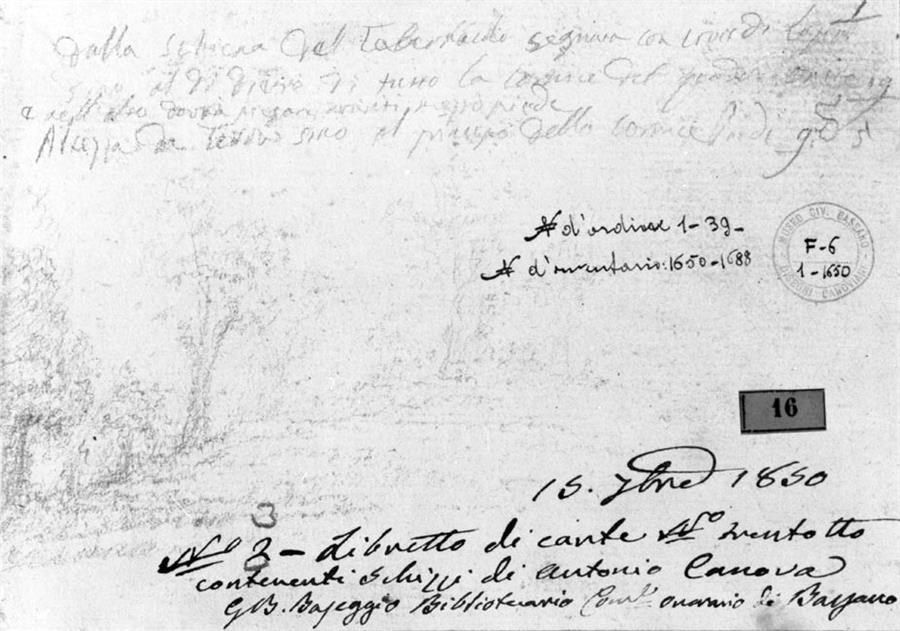 1
Dalla schiena del Tabernacolo segnava con
sino al di dietro di tutto la cornice del 19
e nell'altro dovrà mezzo piede
Altezza da Terra sino al principio della cornice 5
N d'ordine 1-39-
N d'inventario: 1650-1688
MUSEO CIV. BASSANO
F-6
1-1650
DISEGNI CANOVIANI
16
15. 7bre 1850
3
Nº 2 - Libretto di carte Nº trentotto
contenenti schizzi di Antonio Canova
GB. Baseggio Bibliotecario onorario di Bassano